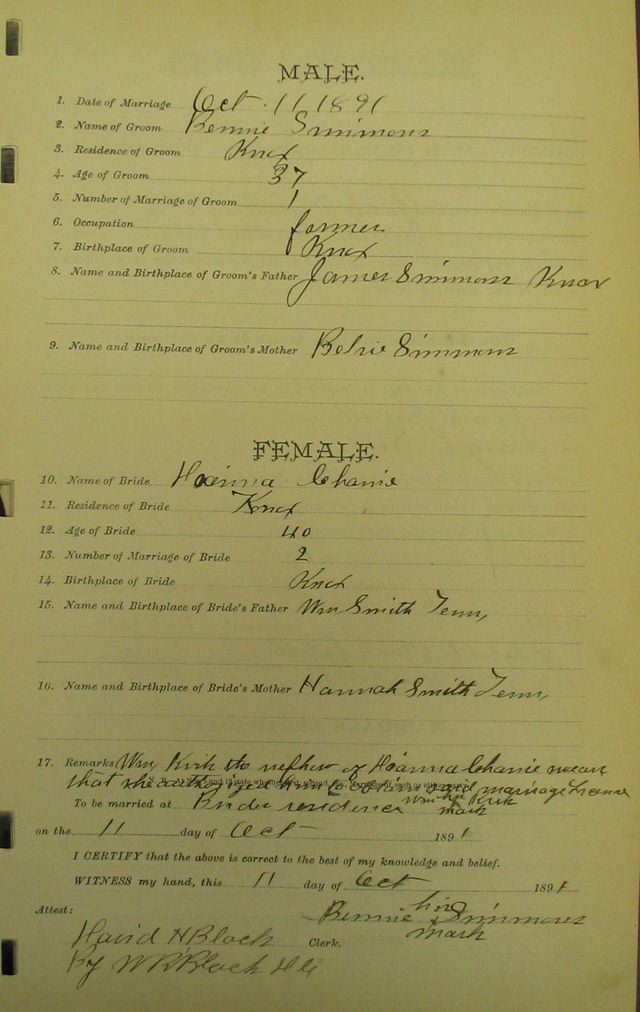 MALE.
1. Date of Marriage Oct. 11 1891
2. Name of Groom Bennie Simmons
3. Residence of Groom Knox
4. Age of Groom 37
5. Number of Marriage of Groom 1
6. Occupation farmer
7. Birthplace of Groom Knox
8. Name and Birthplace of Groom's Father James Simmons Knox
9. Name and Birthplace of Groom's Mother Simmons
FEMALE.
10. Name of Bride
11. Residence of Bride Knox
12. Age of Bride 40
13. Number of Marriage of Bride 2
14. Birthplace of Bride Knox
15. Name and Birthplace of Bride's Father Wm Smith Tenn,
16. Name and Birthplace of Bride's Mother Hannah Smith Tenn,
17. Remarks Wm Kirk the nephew of swears
that she authorized him to obtain said marriage License
Wm his Kirk
To be married at Brides residence mark
on the 11 day of Oct 1891
I CERTIFY that the above is correct to the best of my knowledge and belief.
WITNESS my hand, this 11 day of Oct 1891
his
Attest: Bennie x Simmons
mark
David H Black Clerk.
By W R Black